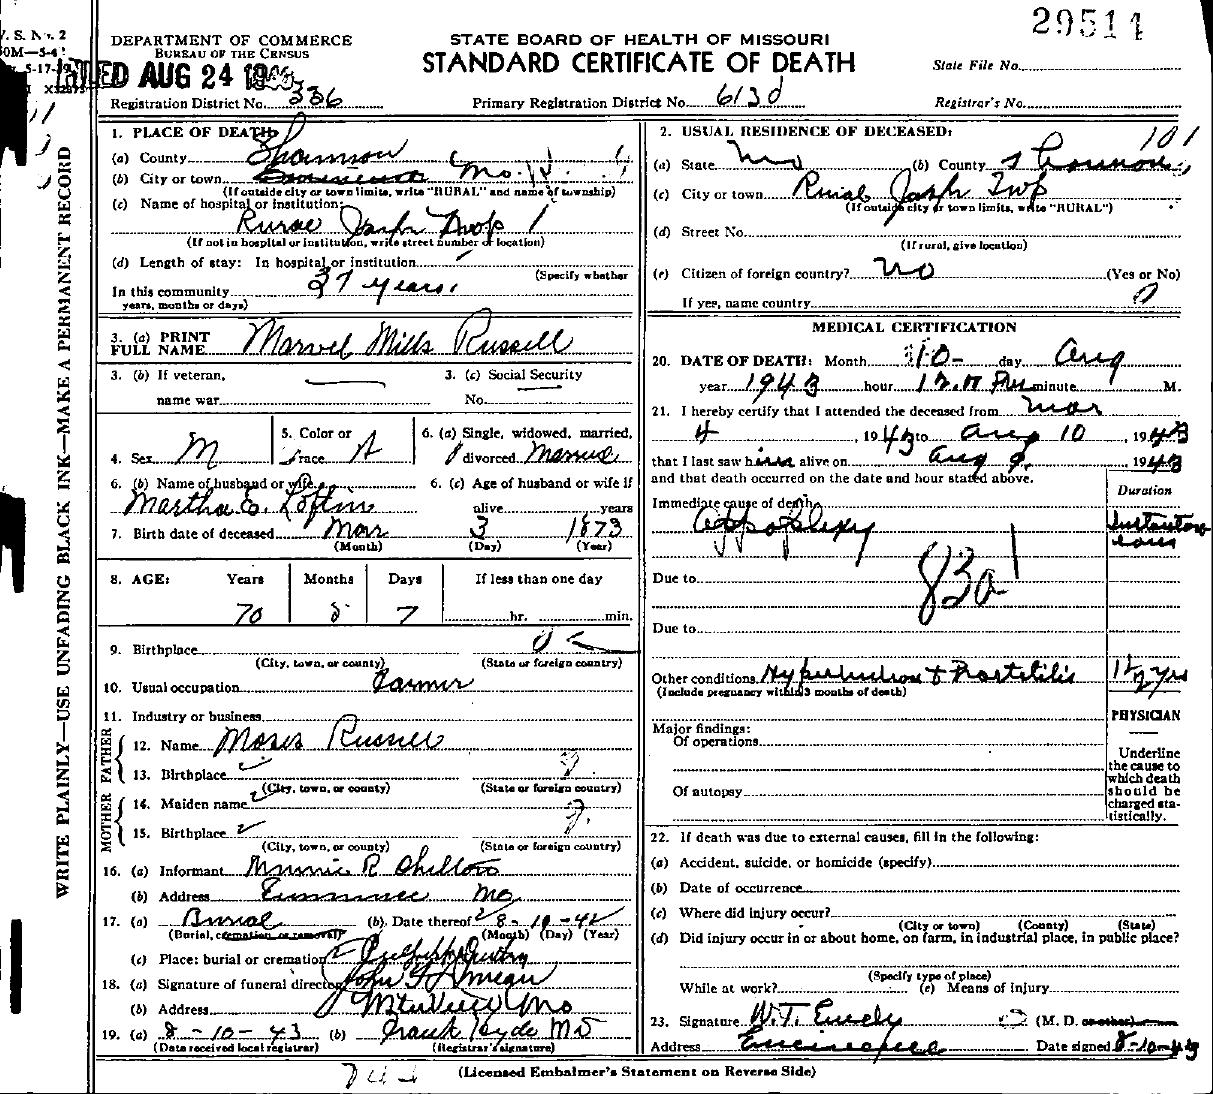 29514
V. S. No. 2
DEPARTMENT OF COMMERCE
BUREAU OF THE CENSUS
STATE BOARD OF HEALTH OF MISSOURI
STANDARD CERTIFICATE OF DEATH
State File No.
FILED AUG 24 1943
Registration District No. 336
Primary Registration District No. 6130
Registrar's No.
WRITE PLAINLY—USE UNFADING BLACK INK—MAKE A PERMANENT RECORD
1. PLACE OF DEATH:
(a) County Shannon
(b) City or town Eminence Mo.
(If outside city or town limits, write "RURAL" and name of township)
(c) Name of hospital or institution:
Rural Jasper Twp
(If not in hospital or institution, write street number or location)
(d) Length of stay: In hospital or institution
(Specify whether
In this community 37 years.
years, months or days)
3. (a) PRINT
FULL NAME Marvel Mills Russell
3. (b) If veteran,
name war
3. (c) Social Security
No.
4. Sex M
5. Color or
race
6. (a) Single, widowed, married,
divorced Married
6. (b) Name of husband or wife
Martha E. Loftin
6. (c) Age of husband or wife if
alive years
7. Birth date of deceased Mar 3 1873
(Month) (Day) (Year)
8. AGE: Years Months Days If less than one day
70 5 7 hr. min.
9. Birthplace
(City, town, or county) (State or foreign country)
10. Usual occupation Farmer
11. Industry or business
FATHER
12. Name Moses Russell
13. Birthplace ?
(City, town, or county) (State or foreign country)
MOTHER
14. Maiden name
15. Birthplace ?
(City, town, or county) (State or foreign country)
16. (a) Informant Minnie R Chilton
(b) Address Eminence Mo
17. (a) Burial (b) Date thereof 8-10-42
(Burial, cremation or removal) (Month) (Day) (Year)
(c) Place: burial or cremation
18. (a) Signature of funeral director John
(b) Address Mtn View Mo
19. (a) 8-10-43 (b) Frank Hyde MD
(Date received local registrar) (Registrar's signature)
2. USUAL RESIDENCE OF DECEASED:
101
(a) State Mo (b) County Shannon
(c) City or town Rural Jasper Twp
(If outside city or town limits, write "RURAL")
(d) Street No.
(If rural, give location)
(e) Citizen of foreign country? No (Yes or No)
If yes, name country 0
MEDICAL CERTIFICATION
20. DATE OF DEATH: Month 10- day Aug
year 1943 hour minute M.
21. I hereby certify that I attended the deceased from Mar
4, 1943 to Aug 10, 1943
that I last saw him alive on Aug 9, 1943
and that death occurred on the date and hour stated above.
Duration
Immediate cause of death
Appoplexy
Instantaneous
83a
Due to
Due to
Other conditions Hypertension & Prostatitis 1 1/2 yrs
(Include pregnancy within 3 months of death)
PHYSICIAN
Major findings:
Of operations
Of autopsy
Underline
the cause to
which death
should be
charged sta-
tistically.
22. If death was due to external causes, fill in the following:
(a) Accident, suicide, or homicide (specify)
(b) Date of occurrence
(c) Where did injury occur?
(City or town) (County) (State)
(d) Did injury occur in or about home, on farm, in industrial place, in public place?
(Specify type of place)
While at work? (e) Means of injury
23. Signature W.T. Eudy (M. D. or other)
Address Eminence Date signed 8-10-43
(Licensed Embalmer's Statement on Reverse Side)